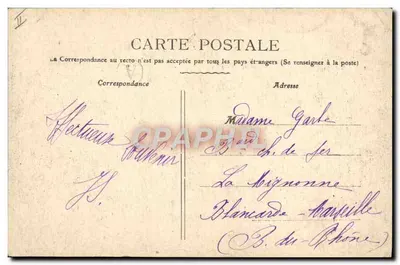 II
CARTE POSTALE
La Correspondance au recto n'est pas acceptée par tous les pays étrangers (Se renseigner à la poste)
Correspondance
Adresse
Affectueux Souvenir
Madame Garbe
Bard ch. de fer
La Mignonne
Blancarde - Marseille
(B. du Rhône)
CPAPHIL